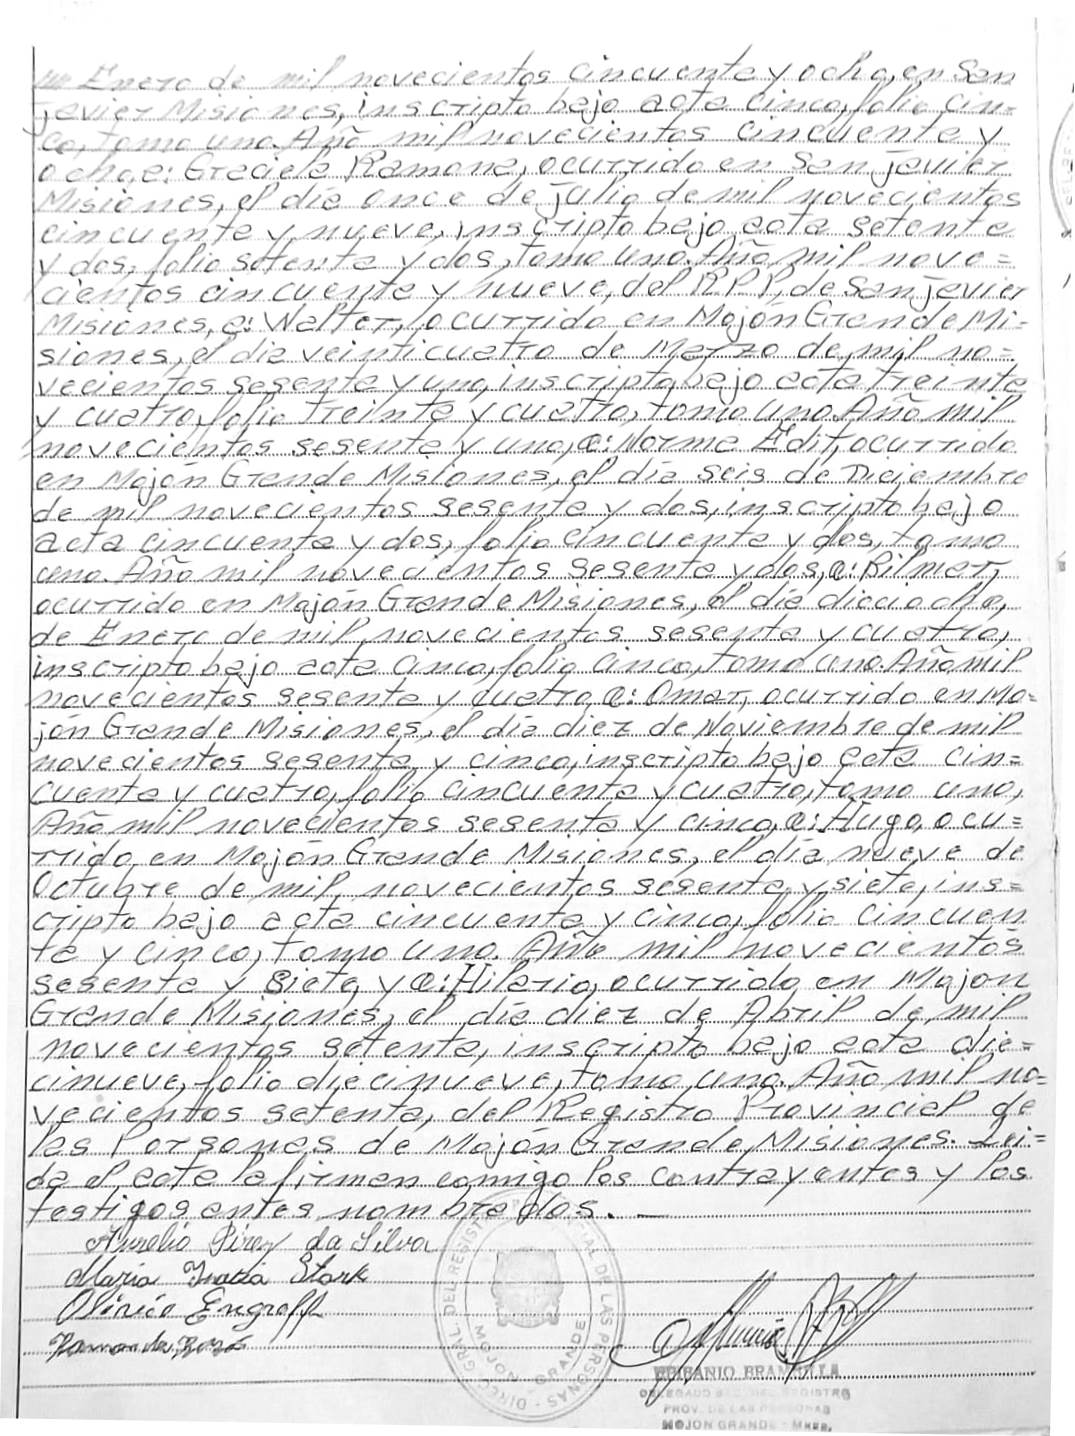 Enero de mil novecientos cincuenta y ocho, en San
Javier Misiones, inscripto bajo acta cinco, folio cin=
co, tomo uno. Año mil novecientos cincuenta y
ocho, a: Graciela Ramona, ocurrido en San Javier
Misiones, el día once de Julio de mil novecientos
cincuenta y nueve, inscripto bajo acta setenta
y dos, folio setenta y dos, tomo uno. Año mil nove=
cientos cincuenta y nueve, del R.P.P, de San Javier
Misiones, a: Walter, ocurrido en Mojon Grande Mi=
siones, el día veinticuatro de Marzo de mil no=
vecientos sesenta y uno, inscripto bajo acta treinta
y cuatro, folio treinta y cuatro, tomo uno. Año mil
novecientos sesenta y uno, a: Norma Edit, ocurrido
en Mojón Grande Misiones, el día seis de Diciembre
de mil novecientos sesenta y dos, inscripto bajo
acta cincuenta y dos, folio cincuenta y dos, tomo
uno. Año mil novecientos sesenta y dos, a: Rilmar,
ocurrido en Mojón Grande Misiones, el día dieciocho,
de Enero de mil novecientos sesenta y cuatro,
inscripto bajo acta cinco, folio cinco, tomo uno. Año mil
novecientos sesenta y cuatro, a: Omar, ocurrido en Mo=
jón Grande Misiones, el día diez de Noviembre de mil
novecientos sesenta y cinco, inscripto bajo acta cin=
cuenta y cuatro, folio cincuenta y cuatro, tomo uno,
Año mil novecientos sesenta y cinco, a: Hugo, ocu=
rrido en Mojón Grande Misiones, el día nueve de
Octubre de mil novecientos sesenta y siete, ins=
cripto bajo acta cincuenta y cinco, folio cincuen
ta y cinco, tomo uno. Año mil novecientos
sesenta y siete, y a: Hilario, ocurrido en Mojon
Grande Misiones, el día diez de Abril de mil
novecientos setenta, inscripto bajo acta die=
cinueve, folio diecinueve, tomo uno. Año mil no=
vecientos setenta, del Registro Provincial de
las Personas de Mojón Grande, Misiones. Leí=
da el acta la firman conmigo los contrayentes y los
testigos antes nombrados. —
Aurelio Pirez da Silva
Maria Stark
Engroff
DIREC. GRAL. DEL REGISTRO DE LAS PERSONAS
MOJON GRANDE
EPIFANIO BRAMBILLA
DELEGADO DEL REGISTRO
PROV. DE LAS PERSONAS
MOJON GRANDE - MNES.